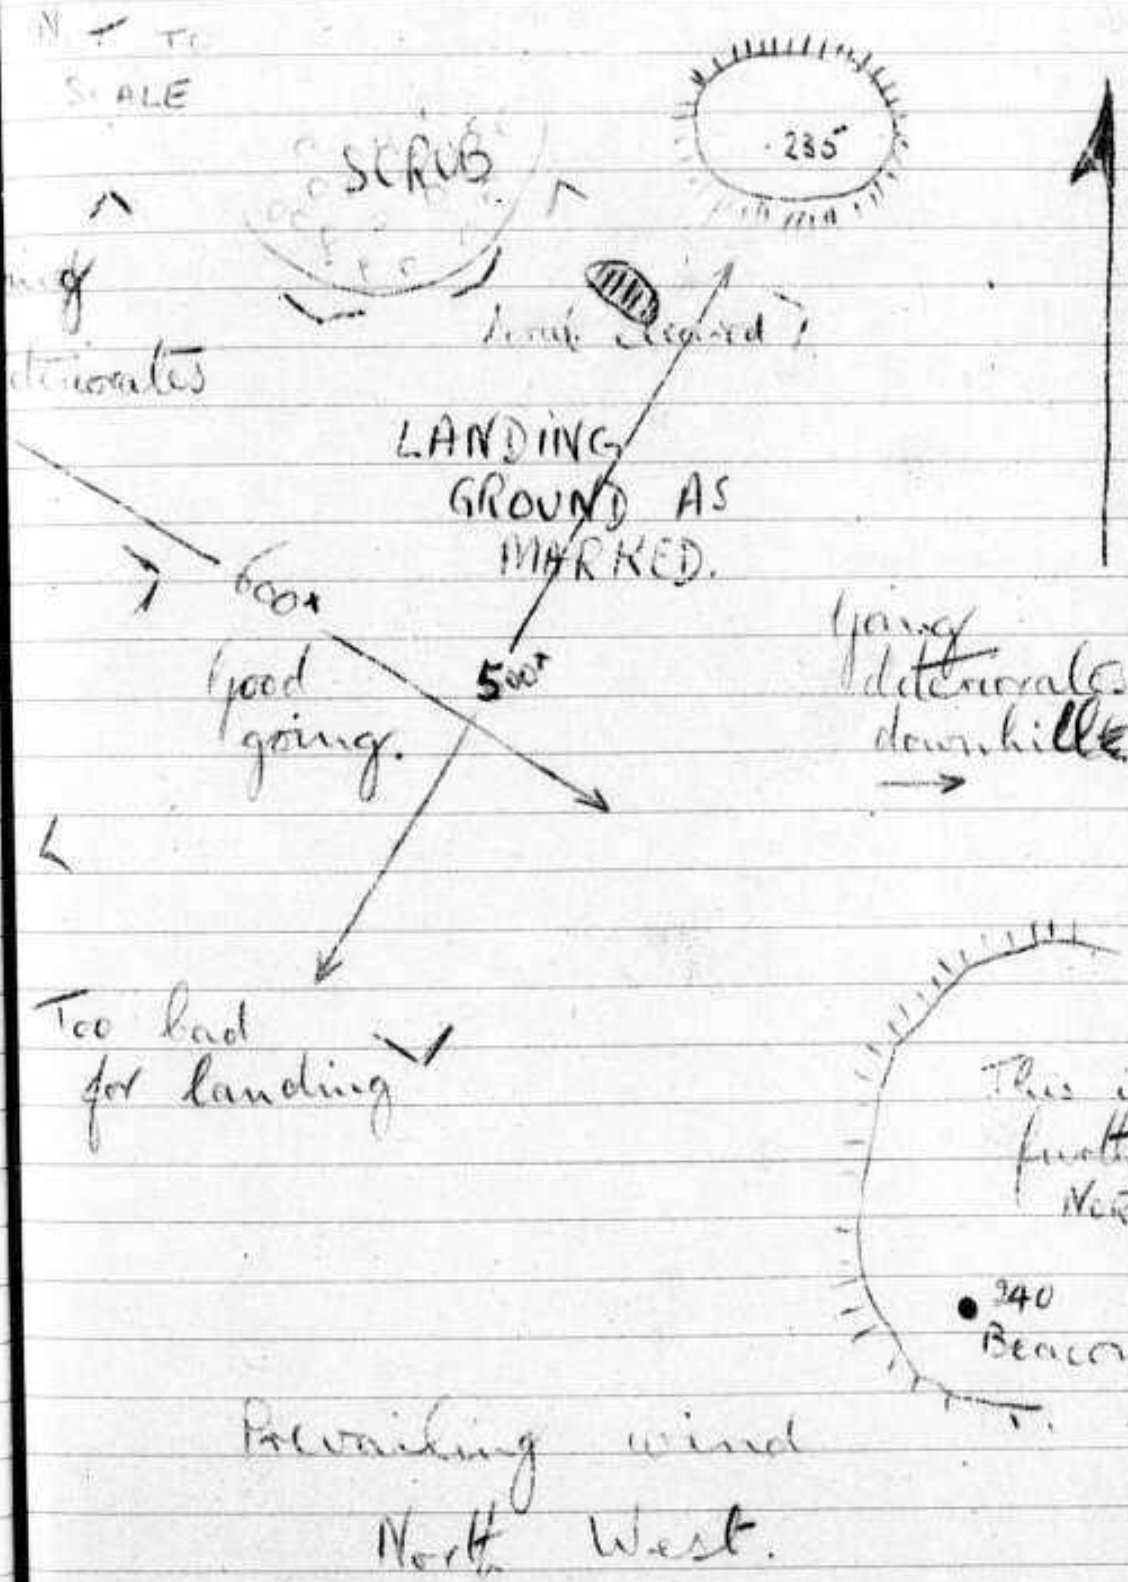 SCALE
SCRUB
.235
deteriorates
LANDING
GROUND AS
MARKED.
600x
500x
Good
going.
Going
deteriorates
downhill
Too bad
for landing
This
240
Beacon
Prevailing wind
North West.